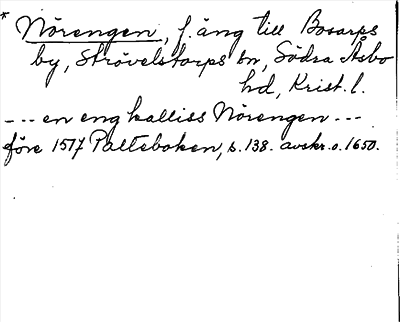 * Nörengen, f. äng till Bosarps
by, Strövelstorps sn, Södra Åsbo
hd, Krist. l.
--- en eng kalliss Nörengen ---
före 1517 Palteboken, s. 138. avskr. o. 1650.